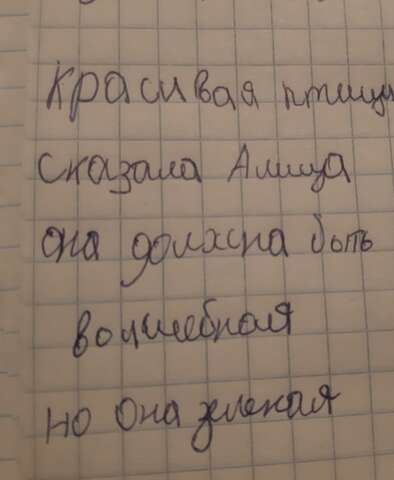 Красивая птица
сказала Алиса
она должна быть
волшебная
но она зеленая